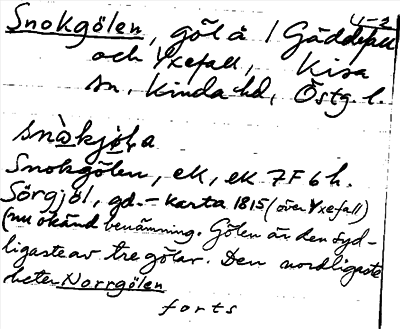 4-2
Snokgölen, göl å / Gäddefall
och Yxefall, Kisa
sn. Kinda hd, Östg. l.
snòkjọ̈ḷa
Snokgölen, ek, ek 7F6h.
Sörgjöl, gd. – karta 1815 (över Yxefall)
(nu okänd benämning. Gölen är den syd-
ligaste av tre gölar. Den nordligaste
heter Norrgölen
forts